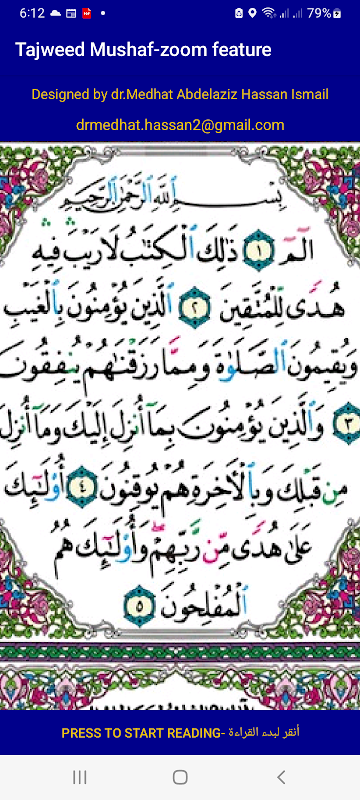 6:12
79%
Tajweed Mushaf-zoom feature
Designed by dr.Medhat Abdelaziz Hassan Ismail
drmedhat.hassan2@gmail.com
بِسْمِ اللَّهِ الرَّحْمَٰنِ الرَّحِيمِ
الٓمٓ ١ ذَٰلِكَ الْكِتَٰبُ لَا رَيْبَ فِيهِ
هُدًى لِّلْمُتَّقِينَ ٢ الَّذِينَ يُؤْمِنُونَ بِالْغَيْبِ
وَيُقِيمُونَ الصَّلَوٰةَ وَمِمَّا رَزَقْنَٰهُمْ يُنفِقُونَ
٣ وَالَّذِينَ يُؤْمِنُونَ بِمَآ أُنزِلَ إِلَيْكَ وَمَآ أُنزِلَ
مِن قَبْلِكَ وَبِالْءَاخِرَةِ هُمْ يُوقِنُونَ ٤ أُولَٰٓئِكَ
عَلَىٰ هُدًى مِّن رَّبِّهِمْ وَأُولَٰٓئِكَ هُمُ
الْمُفْلِحُونَ ٥
PRESS TO START READING- أنقر لبدء القراءة